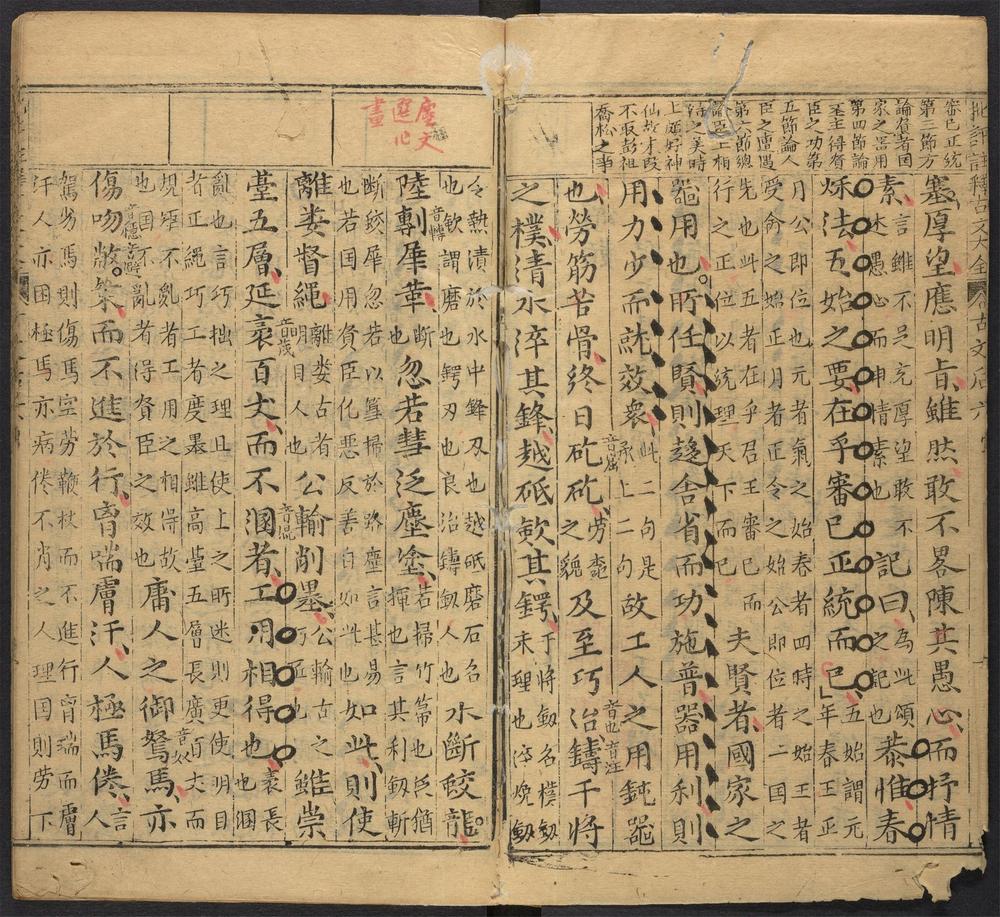 批評註釋古文大全
審已正統
第三節方
論賢者囯
家之器用
第四節論
圣主得賢
臣之功第
五節論人
臣之遭遇
第六節總
論臣之相
得之美時
上頗好神
仙故才叚
不取彭祖
喬松之事
塞厚望應明旨雖然敢不畧陳其愚心而抒情
素言雖不足充厚望敢不
述愚心而申情素也記曰為此頌
之記也恭惟春
秌法五始之要在乎審已正統而已五始謂元
年春王正
月公即位也元者氣之始春者四時之始王者
受命之始正月者正令之始公即位者一囯之
先也此五者在乎君王審已而
行之正位以統理天下而已夫賢者國家之
噐用也所任賢則趍舍省而功施普器用利則
用力少而就效衆此二句是
承上二句故工人之用鈍噐
也勞筋苦骨終日矻矻音窟勞極
之貌及至巧冶音也鑄音注干將
之樸清水淬其鋒越砥歛其鍔干將劒名樸劒
未理也淬
令熱漬於水中鋒刄也越砥磨石名
也歛謂磨也鍔刃也良冶鑄劒人也水斷蛟龍
陸剸音轉犀革斷
也忽若彗泛塵塗若掃竹箒也泛猶
揮也言其利劒斬
斷蛟犀忽若以篲掃於路塵言甚易
也若囯用賢臣化惡反善自如此也如此則使
離婁督繩離婁古者
明目人也公輸削墨公輸古之
巧匠也雖崇
臺五層延袤音茂百丈而不溷音混者工用相得也袤長
也溷
亂也言巧拙之理且使上之所迷則更使明目
者正繩巧工者度墨雖高臺五層長廣百丈而
規矩不亂者工用之相得故
也囯不亂者得賢臣之效也庸人之御駑音奴馬亦
傷吻敝策而不進於行胷喘膚汗人極馬倦言
人
駕劣馬則傷馬空勞鞭杖而不進行胷喘而膚
汗人亦困極馬亦病倦不肖之人理囯則勞下
慶文
選
畫